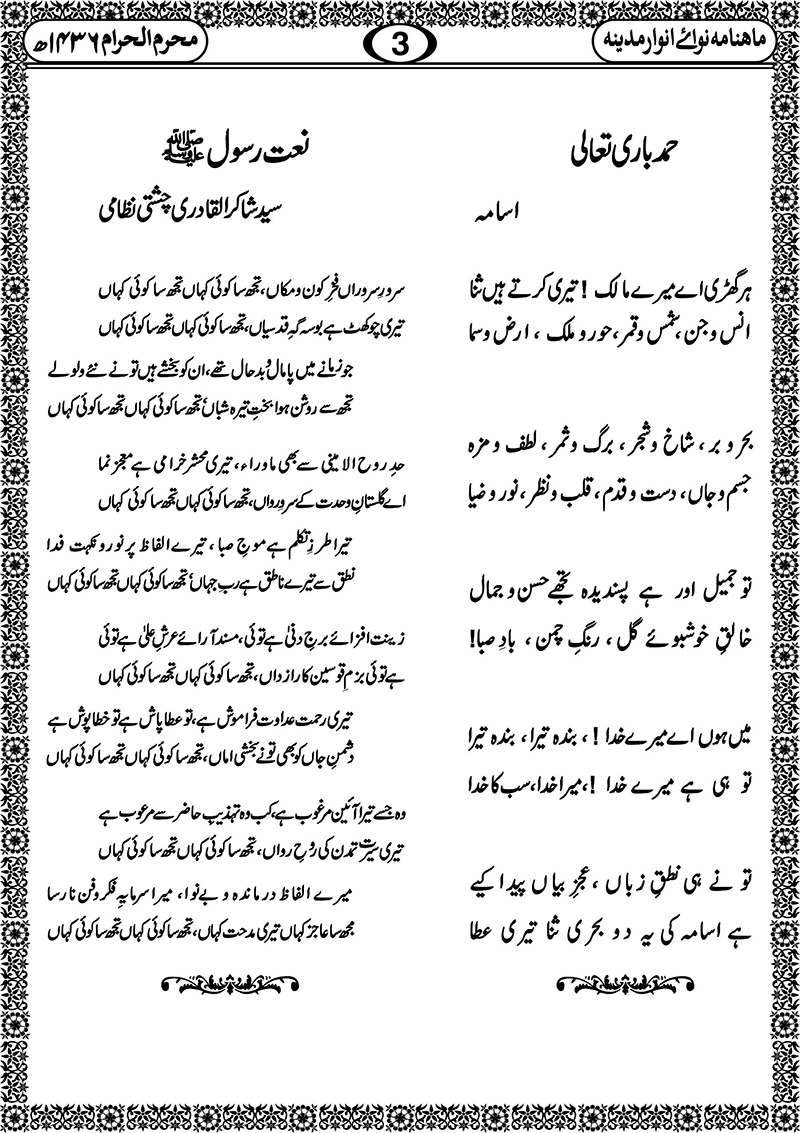 ماہنامہ نوائے انوار مدینہ
3
محرم الحرام ۱۴۳۶ھ
حمد باری تعالی
اسامہ
ہر گھڑی اے میرے مالک ! تیری کرتے ہیں ثنا
انس و جن ،شمس و قمر، حور و ملک ، ارض و سما
بحر و بر ، شاخ و شجر ، برگ و ثمر ، لطف و مزہ
جسم و جاں، دست و قدم، قلب و نظر، نور و ضیا
تو جمیل اور ہے پسندیدہ تجھے حسن و جمال
خالقِ خوشبوئے گل ، رنگِ چمن ، بادِ صبا!
میں ہوں اے میرے خدا !، بندہ تیرا ، بندہ تیرا
تو ہی ہے میرے خدا !، میرا خدا، سب کا خدا
تو نے ہی نطقِ زباں ، عجزِ بیاں پیدا کیے
ہے اسامہ کی یہ دو بحری ثنا تیری عطا
نعت رسول ﷺ
سید شاکر القادری چشتی نظامی
سرورِ سروراں فخرِ کون و مکاں، تجھ سا کوئی کہاں تجھ سا کوئی کہاں
تیری چوکھٹ ہے بوسہ گہِ قدسیاں، تجھ سا کوئی کہاں تجھ سا کوئی کہاں
جو زمانے میں پامال و بد حال تھے، ان کو بخشے ہیں تو نے نئے ولولے
تجھ سے روشن ہوا بختِ تیرہ شباں، تجھ سا کوئی کہاں تجھ سا کوئی کہاں
حدِ روح الامینی سے بھی ماوراء، تیری محشر خرامی ہے معجز نما
اے گلستانِ وحدت کے سرورواں، تجھ سا کوئی کہاں تجھ سا کوئی کہاں
تیرا طرزِ تکلم ہے موجِ صبا ، تیرے الفاظ پر نور و نکہت فدا
نطق سے تیرے ناطق ہے ربِ جہاں، تجھ سا کوئی کہاں تجھ سا کوئی کہاں
زینت افزائے برجِ دنیٰ ہے توئی، مسند آرائے عرشِ علیٰ ہے توئی
ہے توئی بزمِ قوسین کا رازداں، تجھ سا کوئی کہاں تجھ سا کوئی کہاں
تیری رحمت عداوت فراموش ہے، تو عطا پاش ہے تو خطا پوش ہے
دشمنِ جاں کو بھی تو نے بخشی اماں، تجھ سا کوئی کہاں تجھ سا کوئی کہاں
وہ جسے تیرا آئین مرغوب ہے، کب وہ تہذیبِ حاضر سے مرعوب ہے
تیری سیرت تمدن کی رُوحِ رواں، تجھ سا کوئی کہاں تجھ سا کوئی کہاں
میرے الفاظ درماندہ و بے نوا، میرا سرمایۂ فکر و فن نارسا
مجھ سا عاجز کہاں تیری مدحت کہاں، تجھ سا کوئی کہاں تجھ سا کوئی کہاں